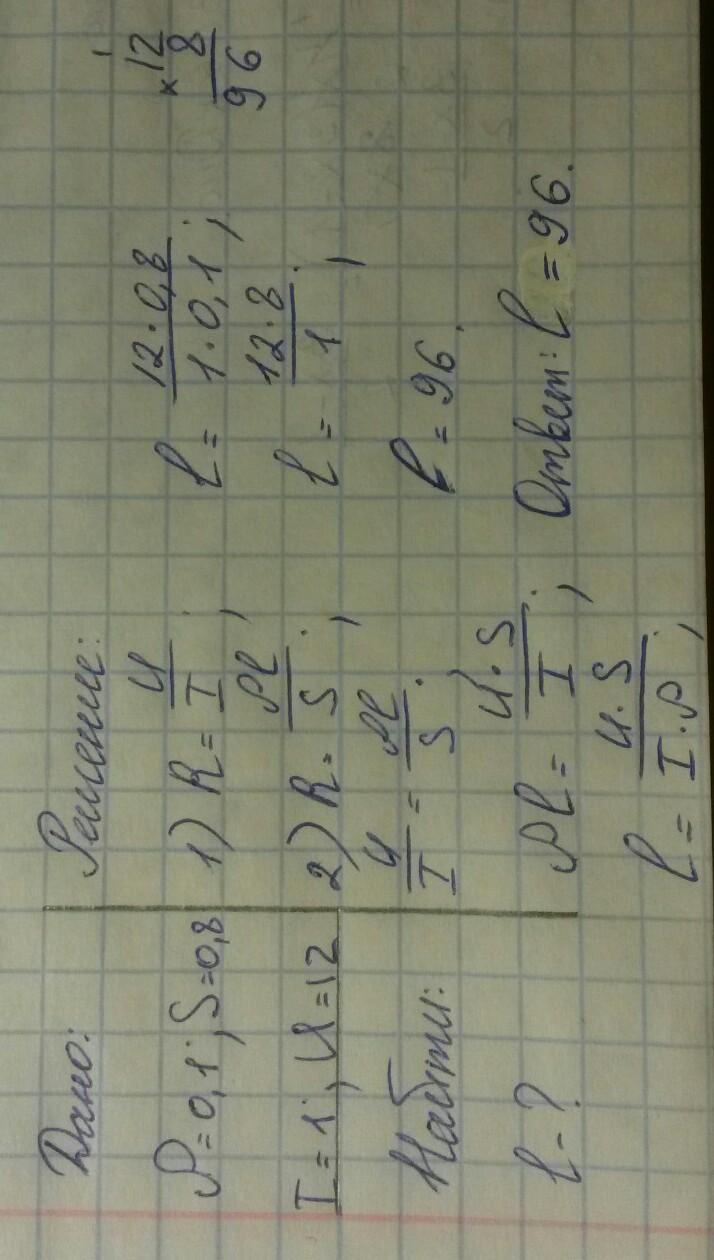 Дано:
ρ=0,1; S=0,8
I=1; U=12
Найти:
l-?
Решение:
1) R=U/I;
2) R=ρl/S;
U/I=ρl/S;
ρl=U·S/I;
l=U·S/I·ρ;
l=12·0,8/1·0,1;
l=12·8/1;
l=96.
Ответ: l=96.
1
×12
8
96